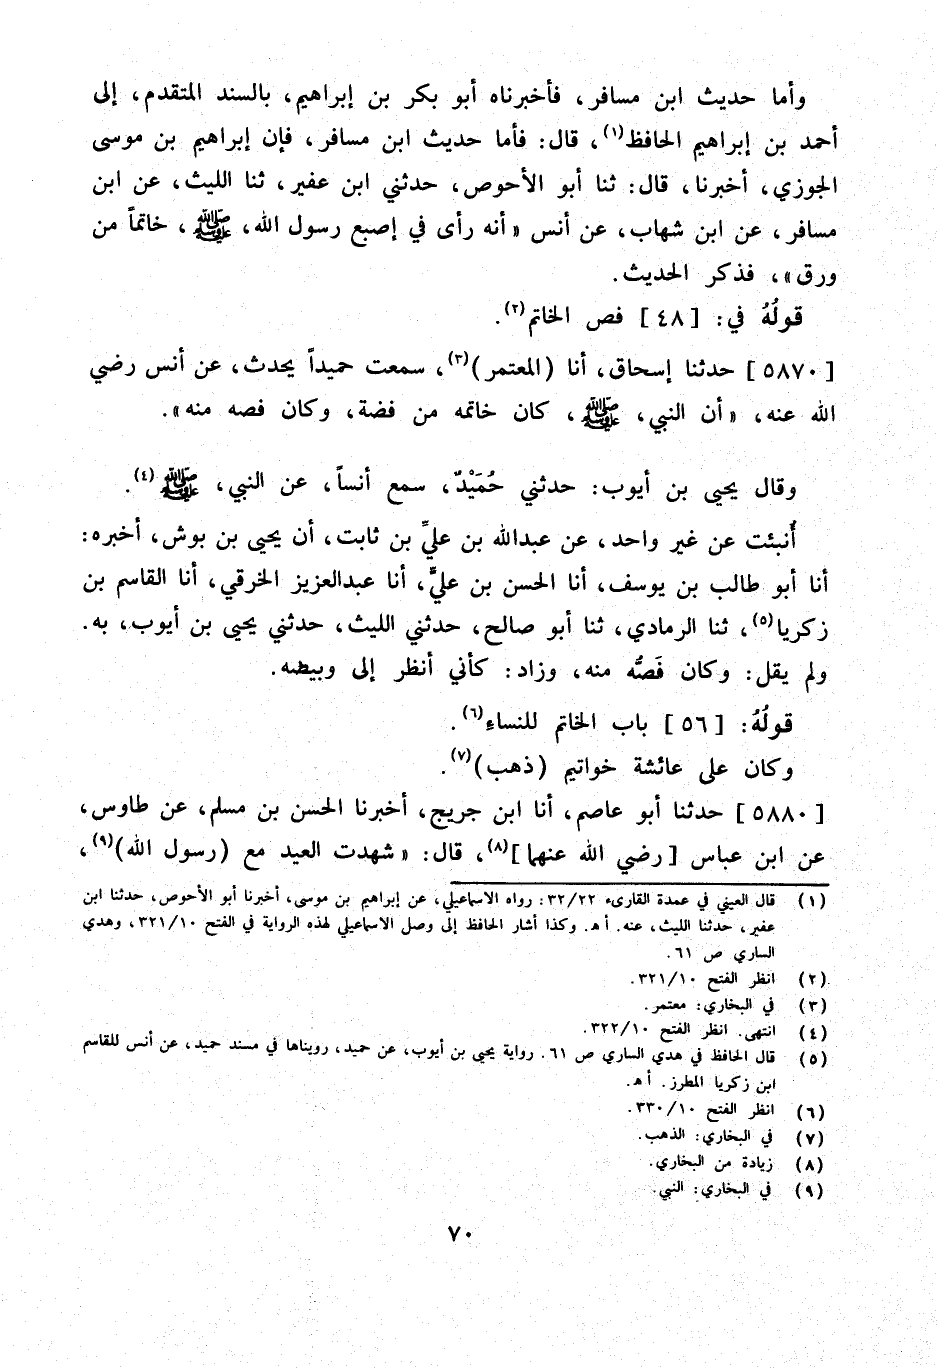 وأما حديث ابن مسافر، فأخبرناه أبو بكر بن إبراهيم، بالسند المتقدم، إلى
أحمد بن إبراهيم الحافظ(١)، قال: فأما حديث ابن مسافر، فإن إبراهيم بن موسى
الجوزي، أخبرنا، قال: ثنا أبو الأحوص، حدثني ابن عفير، ثنا الليث، عن ابن
مسافر، عن ابن شهاب، عن أنس «أنه رأى في إصبع رسول الله، ﷺ، خاتماً من
ورق»، فذكر الحديث.
قولُهُ في: [٤٨] فص الخاتم(٢).
[٥٨٧٠] حدثنا إسحاق، أنا (المعتمر)(٣)، سمعت حميداً يحدث، عن أنس رضي
الله عنه، «أن النبي، ﷺ، كان خاتمه من فضة، وكان فصه منه».
وقال يحيى بن أيوب: حدثني حُمَيْدٌ، سمع أنساً، عن النبي، ﷺ(٤).
أُنبئت عن غير واحد، عن عبدالله بن عليِّ بن ثابت، أن يحيى بن بوش، أخبره:
أنا أبو طالب بن يوسف، أنا الحسن بن عليٍّ، أنا عبدالعزيز الخرقي، أنا القاسم بن
زكريا(٥)، ثنا الرمادي، ثنا أبو صالح، حدثني الليث، حدثني يحيى بن أيوب، به.
ولم يقل: وكان فَصُّه منه، وزاد: كأني أنظر إلى وبيضه.
قولُهُ: [٥٦] باب الخاتم للنساء(٦).
وكان على عائشة خواتيم (ذهب)(٧).
[٥٨٨٠] حدثنا أبو عاصم، أنا ابن جريج، أخبرنا الحسن بن مسلم، عن طاوس،
عن ابن عباس [رضي الله عنهما](٨)، قال: «شهدت العيد مع (رسول الله)(٩)،
(١) قال العيني في عمدة القارىء ٣٢/٢٢: رواه الاسماعيلي، عن إبراهيم بن موسى، أخبرنا أبو الأحوص، حدثنا ابن
عفير، حدثنا الليث، عنه. أ هـ. وكذا أشار الحافظ إلى وصل الاسماعيلي لهذه الرواية في الفتح ٣٢١/١٠، وهدي
الساري ص ٦١.
(٢) انظر الفتح ٣٢١/١٠.
(٣) في البخاري: معتمر.
(٤) انتهى. انظر الفتح ٣٢٢/١٠.
(٥) قال الحافظ في هدي الساري ص ٦١. رواية يحيى بن أيوب، عن حميد، رويناها في مسند حميد، عن أنس للقاسم
ابن زكريا المطرز. أ هـ.
(٦) انظر الفتح ٣٣٠/١٠.
(٧) في البخاري: الذهب.
(٨) زيادة من البخاري.
(٩) في البخاري: النبي.
٧٠